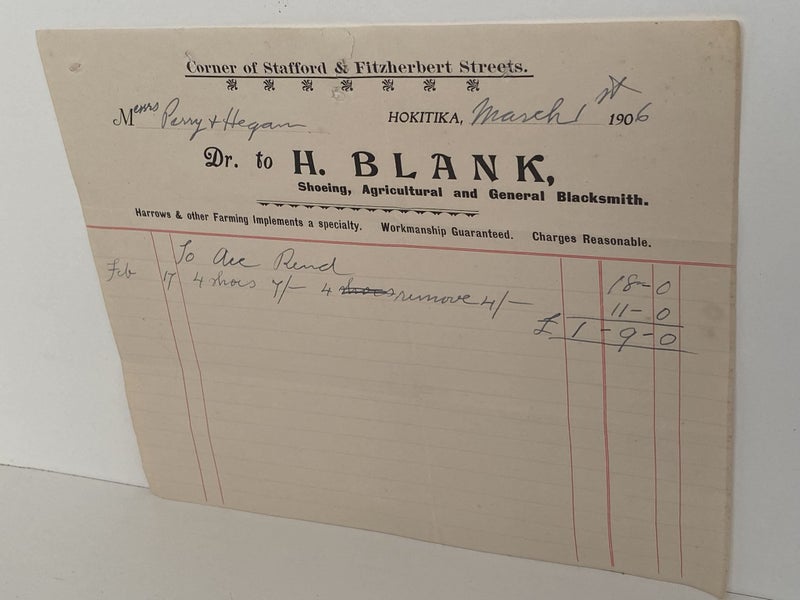 Corner of Stafford & Fitzherbert Streets.
Messrs Perry & Hegan HOKITIKA, March 1st 1906
Dr. to H. BLANK,
Shoeing, Agricultural and General Blacksmith.
Harrows & other Farming Implements a specialty. Workmanship Guaranteed. Charges Reasonable.
To Acc Rend 18-0
Feb 17 4 shoes 7/- 4 shoes remove 4/- 11-0
£ 1-9-0